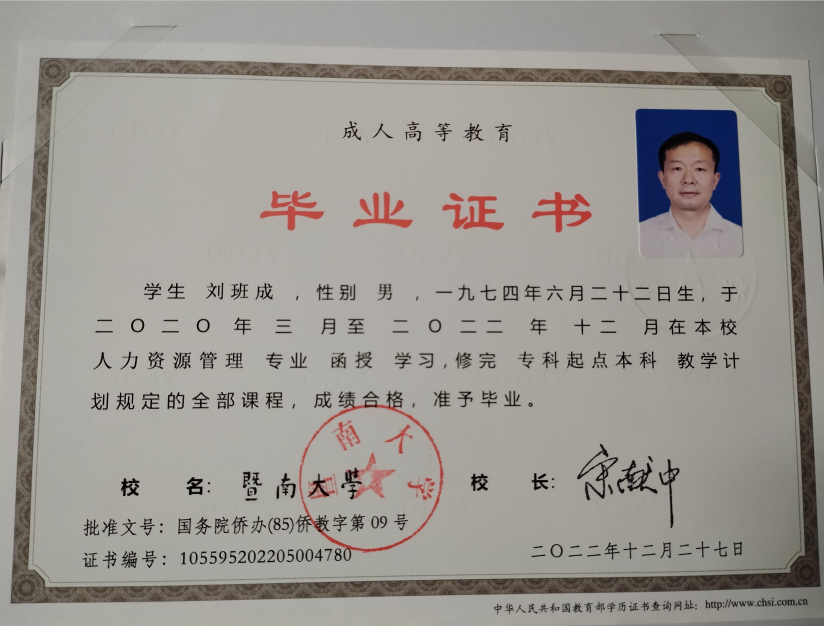 成人高等教育
毕业证书
学生 刘班成 ，性别 男 ，一九七四年六月二十二日生，于
二〇二〇 年 三 月至 二〇二二 年 十二 月在本校
人力资源管理 专业 函授 学习，修完 专科起点本科 教学计
划规定的全部课程，成绩合格，准予毕业。
暨南大学
校 名：暨南大学 校 长：宋献中
批准文号：国务院侨办(85)侨教字第 09 号
证书编号：105595202205004780 二〇二二年十二月二十七日
中华人民共和国教育部学历证书查询网址：http://www.chsi.com.cn